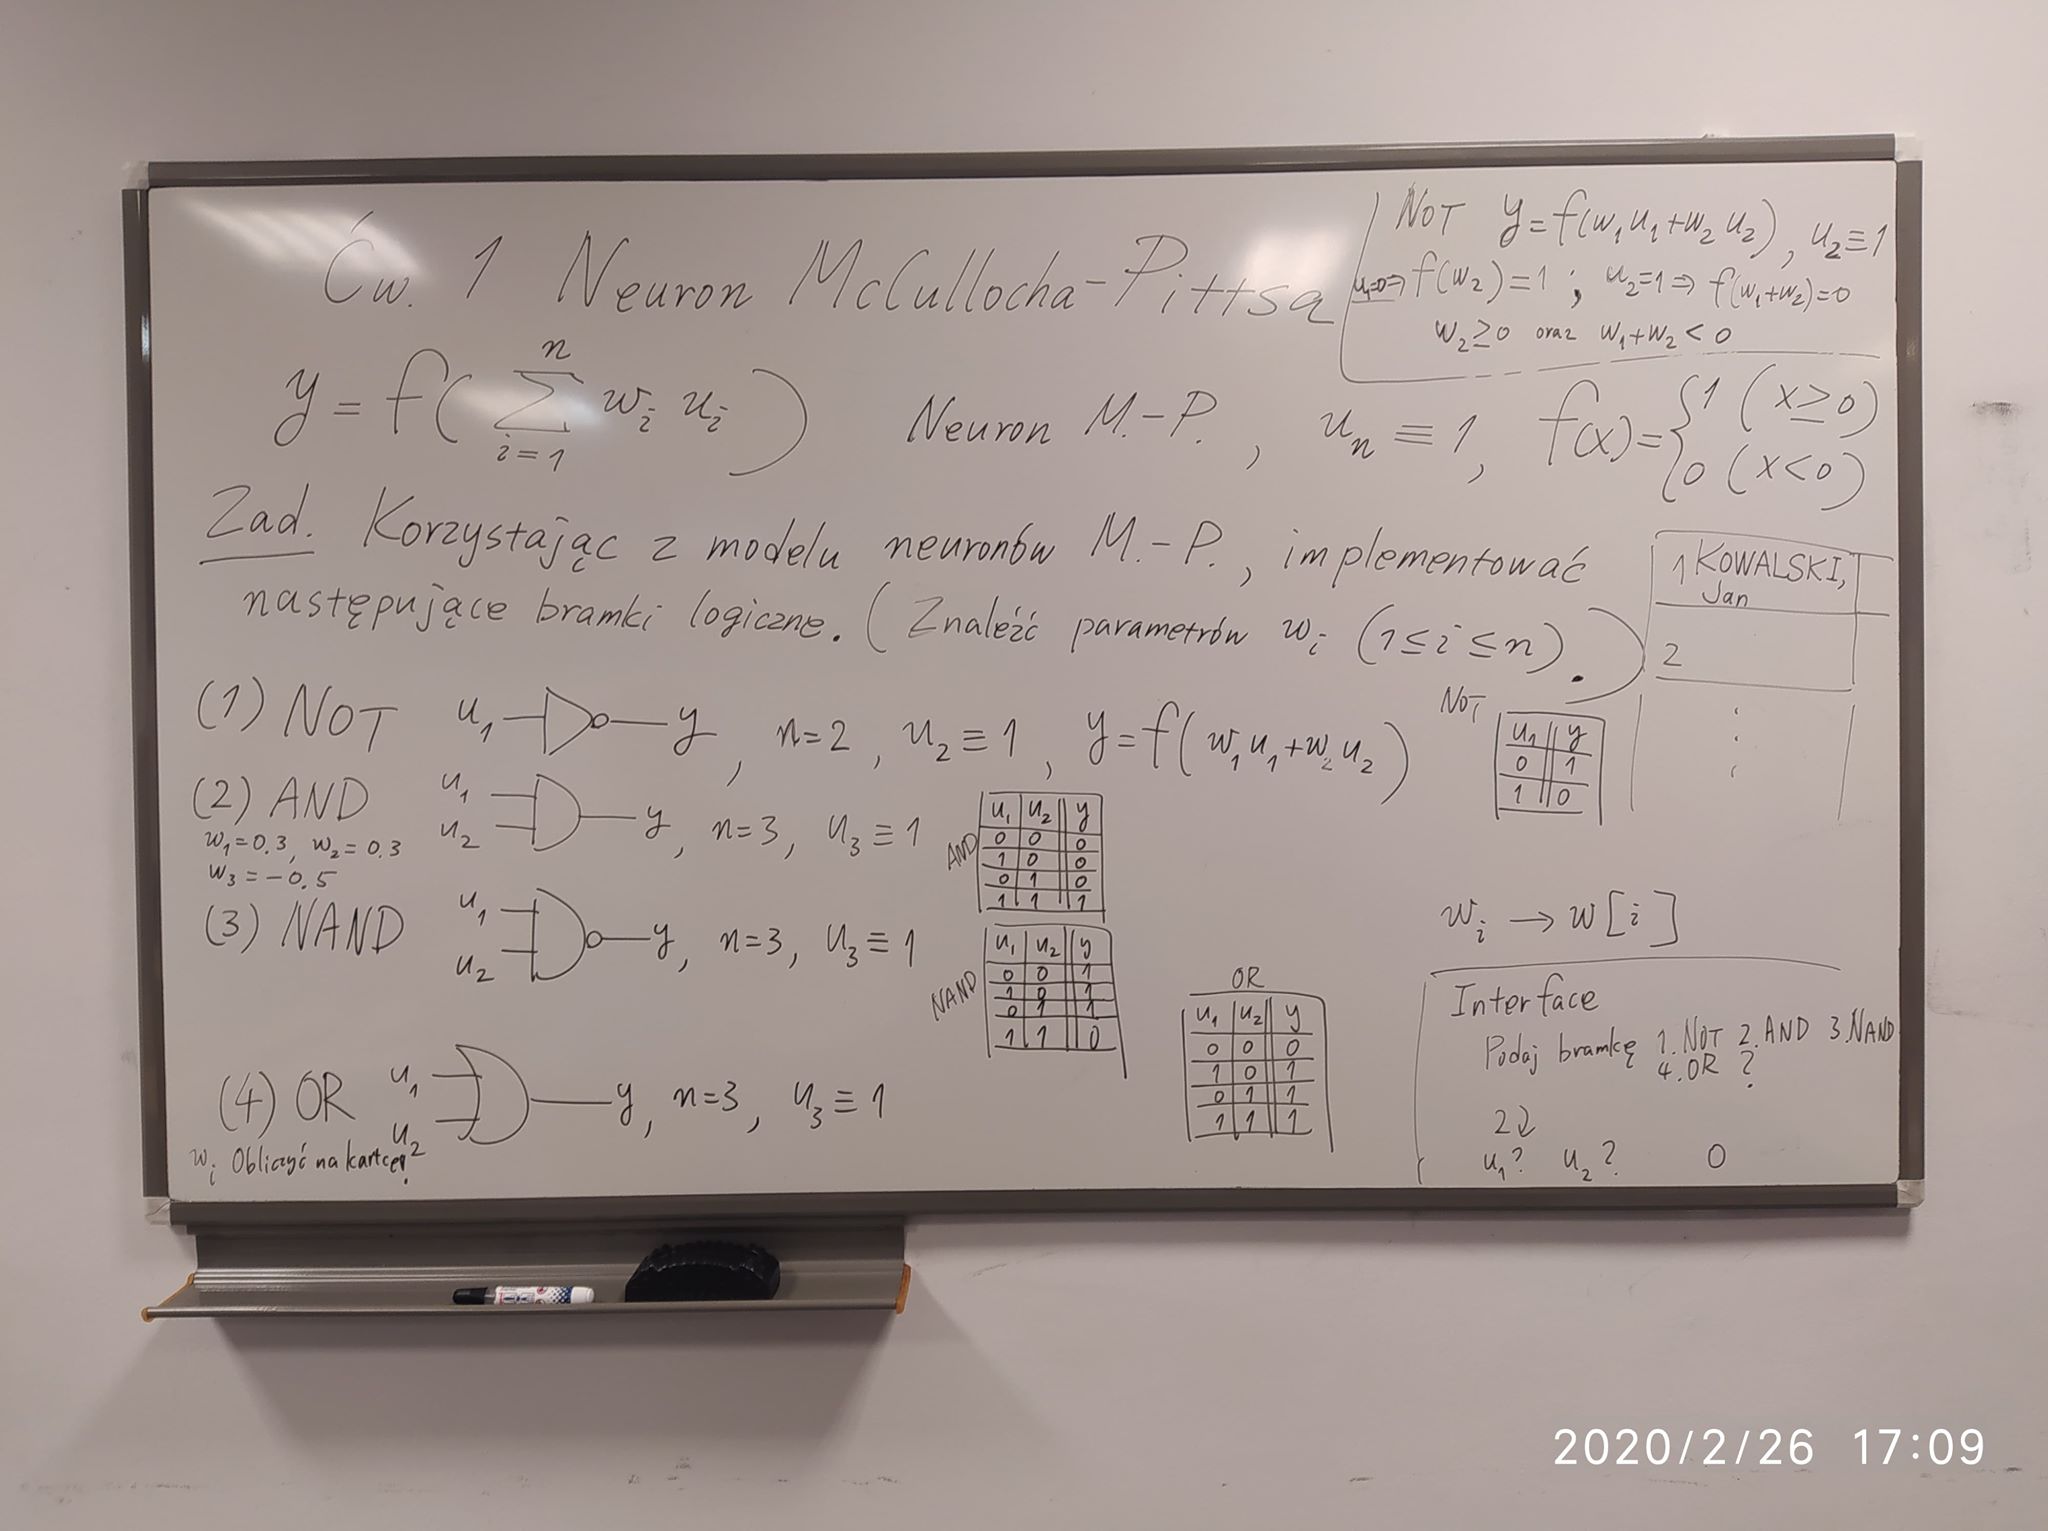 Ćw. 1 Neuron McCullocha-Pittsa
NOT y=f(w₁u₁+w₂u₂), u₂≡1
u₁=0⇒f(w₂)=1 ; u₂=1⇒f(w₁+w₂)=0
w₂≥0 oraz w₁+w₂<0
y = f( Σ wᵢ uᵢ ) n i=1 Neuron M.-P. , uₙ ≡ 1, f(x)= { 1 (x≥0)
0 (x<0)
Zad. Korzystając z modelu neuronów M.-P., implementować
następujące bramki logiczne. (Znaleźć parametrów wᵢ (1≤i≤n).)
1 KOWALSKI,
Jan
2
(1) NOT u₁ y, n=2, u₂≡1, y=f(w₁u₁+w₂u₂)
NOT
u₁ y
0 1
1 0
(2) AND u₁ u₂ y, n=3, u₃≡1
w₁=0.3, w₂=0.3
w₃=-0.5
AND
u₁ u₂ y
0 0 0
1 0 0
0 1 0
1 1 1
(3) NAND u₁ u₂ y, n=3, u₃≡1
NAND
u₁ u₂ y
0 0 1
1 0 1
0 1 1
1 1 0
(4) OR u₁ u₂ y, n=3, u₃≡1
wᵢ Obliczyć na kartce!
OR
u₁ u₂ y
0 0 0
1 0 1
0 1 1
1 1 1
wᵢ → w[i]
Interface
Podaj bramkę 1.NOT 2.AND 3.NAND
4.OR ?
2
u₁? u₂? 0
2020/2/26 17:09